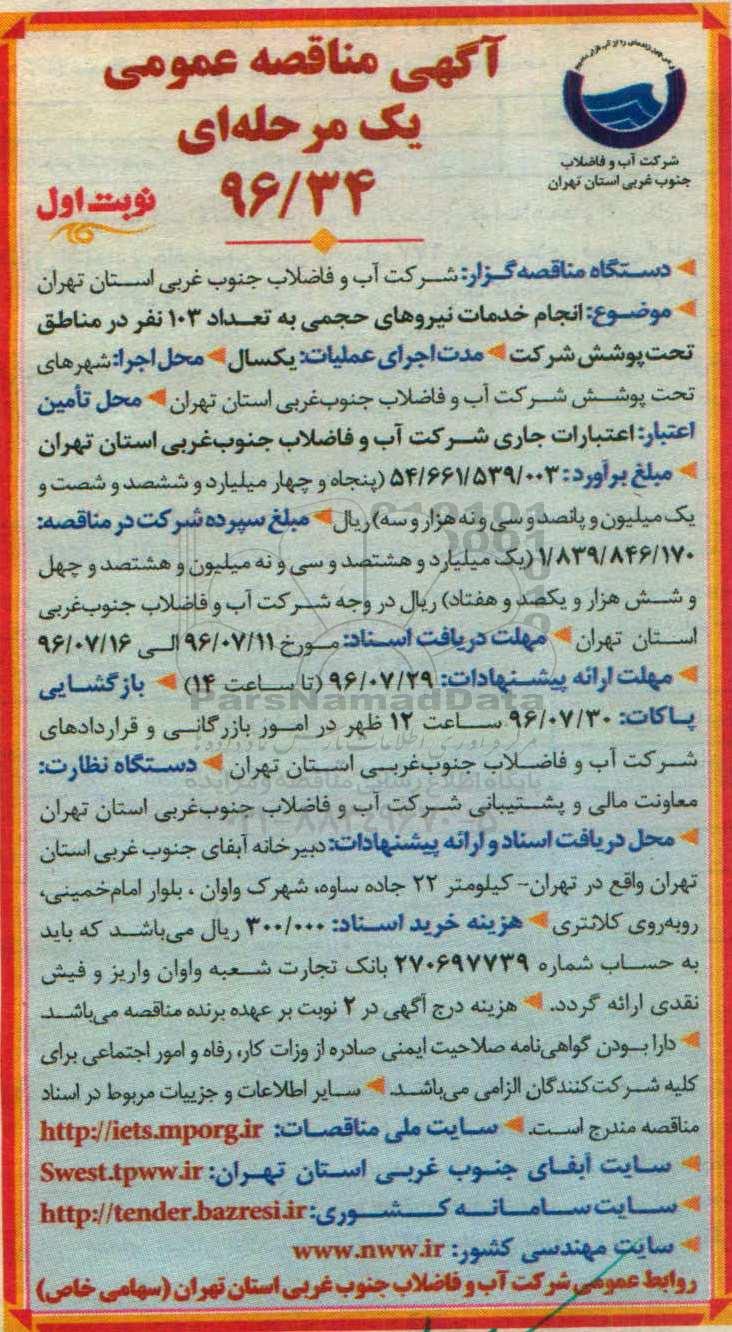 شرکت آب و فاضلاب
جنوب غربی استان تهران
آگهی مناقصه عمومی
یک مرحله‌ای
۹۶/۳۴
نوبت اول
دستگاه مناقصه‌گزار: شرکت آب و فاضلاب جنوب غربی استان تهران
موضوع: انجام خدمات نیروهای حجمی به تعداد ۱۰۳ نفر در مناطق
تحت پوشش شرکت مدت اجرای عملیات: یکسال محل اجرا: شهرهای
تحت پوشش شرکت آب و فاضلاب جنوب‌غربی استان تهران محل تأمین
اعتبار: اعتبارات جاری شرکت آب و فاضلاب جنوب‌غربی استان تهران
مبلغ برآورد: ۵۴/۶۶۱/۵۳۹/۰۰۳ (پنجاه و چهار میلیارد و ششصد و شصت و
یک میلیون و پانصد و سی و نه هزار و سه) ریال مبلغ سپرده شرکت در مناقصه:
۱/۸۳۹/۸۴۶/۱۷۰ (یک میلیارد و هشتصد و سی و نه میلیون و هشتصد و چهل
و شش هزار و یکصد و هفتاد) ریال در وجه شرکت آب و فاضلاب جنوب‌غربی
استان تهران مهلت دریافت اسناد: مورخ ۹۶/۰۷/۱۱ الی ۹۶/۰۷/۱۶
مهلت ارائه پیشنهادات: ۹۶/۰۷/۲۹ (تا ساعت ۱۴) بازگشایی
پاکات: ۹۶/۰۷/۳۰ ساعت ۱۲ ظهر در امور بازرگانی و قراردادهای
شرکت آب و فاضلاب جنوب‌غربی استان تهران دستگاه نظارت:
معاونت مالی و پشتیبانی شرکت آب و فاضلاب جنوب‌غربی استان تهران
محل دریافت اسناد و ارائه پیشنهادات: دبیرخانه آبفای جنوب غربی استان
تهران واقع در تهران- کیلومتر ۲۲ جاده ساوه، شهرک واوان ، بلوار امام‌خمینی،
روبه‌روی کلانتری هزینه خرید اسناد: ۳۰۰/۰۰۰ ریال می‌باشد که باید
به حساب شماره ۲۷۰۶۹۷۷۳۹ بانک تجارت شعبه واوان واریز و فیش
نقدی ارائه گردد. هزینه درج آگهی در ۲ نوبت بر عهده برنده مناقصه می‌باشد.
دارا بودن گواهی‌نامه صلاحیت ایمنی صادره از وزات کار، رفاه و امور اجتماعی برای
کلیه شرکت‌کنندگان الزامی می‌باشد. سایر اطلاعات و جزییات مربوط در اسناد
مناقصه مندرج است. سایت ملی مناقصات: http://iets.mporg.ir
سایت آبفای جنوب غربی استان تهران: Swest.tpww.ir
سایت سامانه کشوری: http://tender.bazresi.ir
سایت مهندسی کشور: www.nww.ir
روابط عمومی شرکت آب و فاضلاب جنوب غربی استان تهران (سهامی خاص)
ParsNamadData